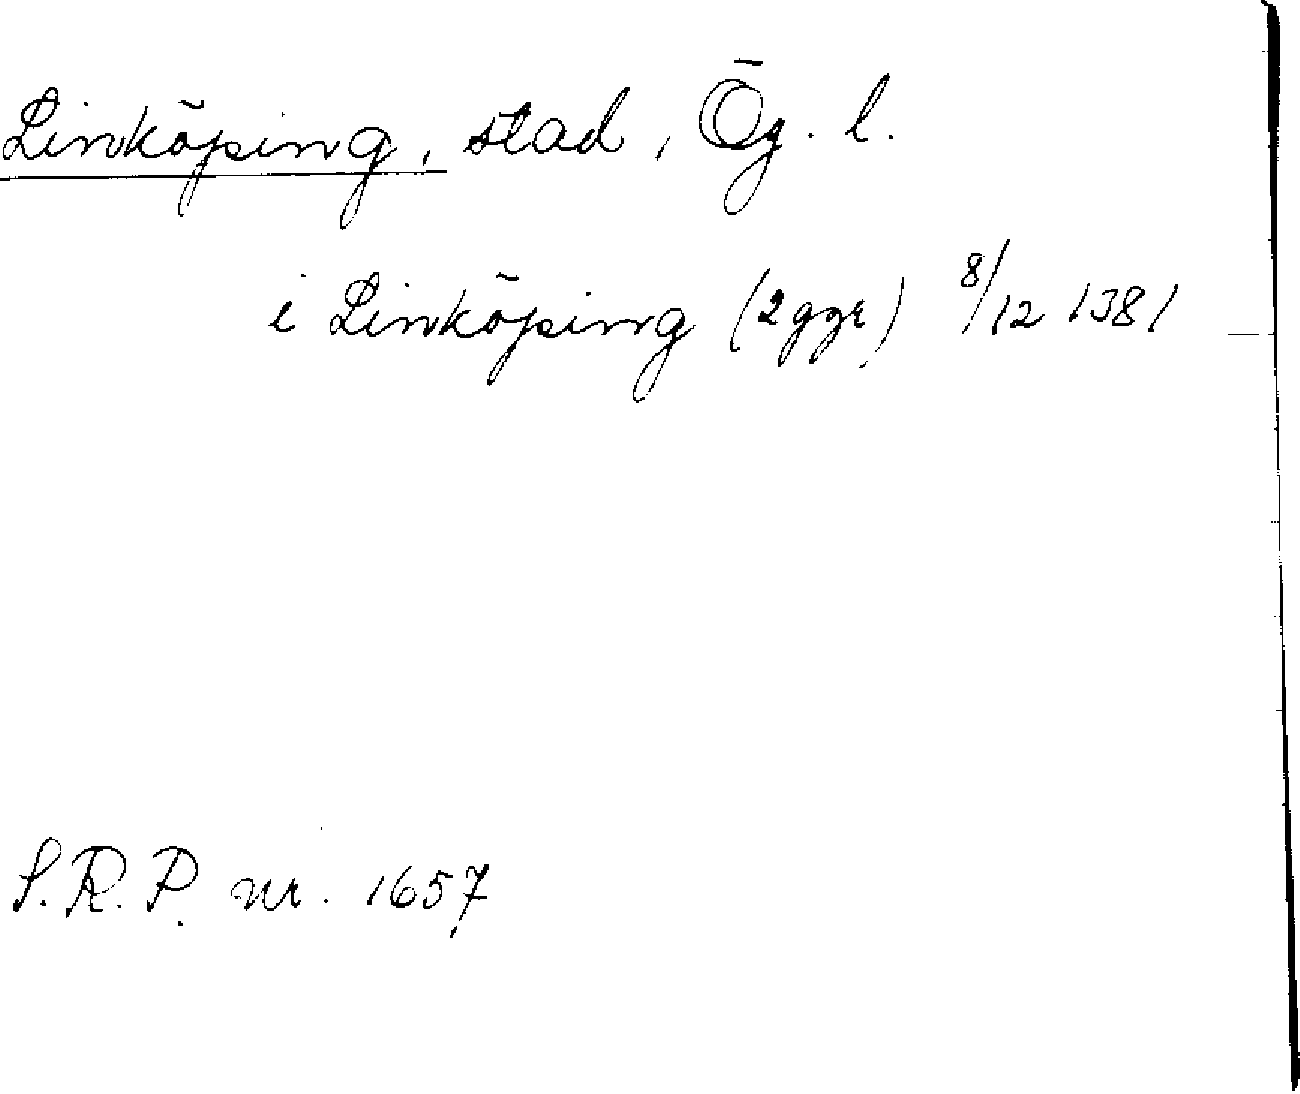 Linköping, stad, Ög. l.
i Linköping (2 ggr) 8/12 1381
S.R.P. nr. 1657